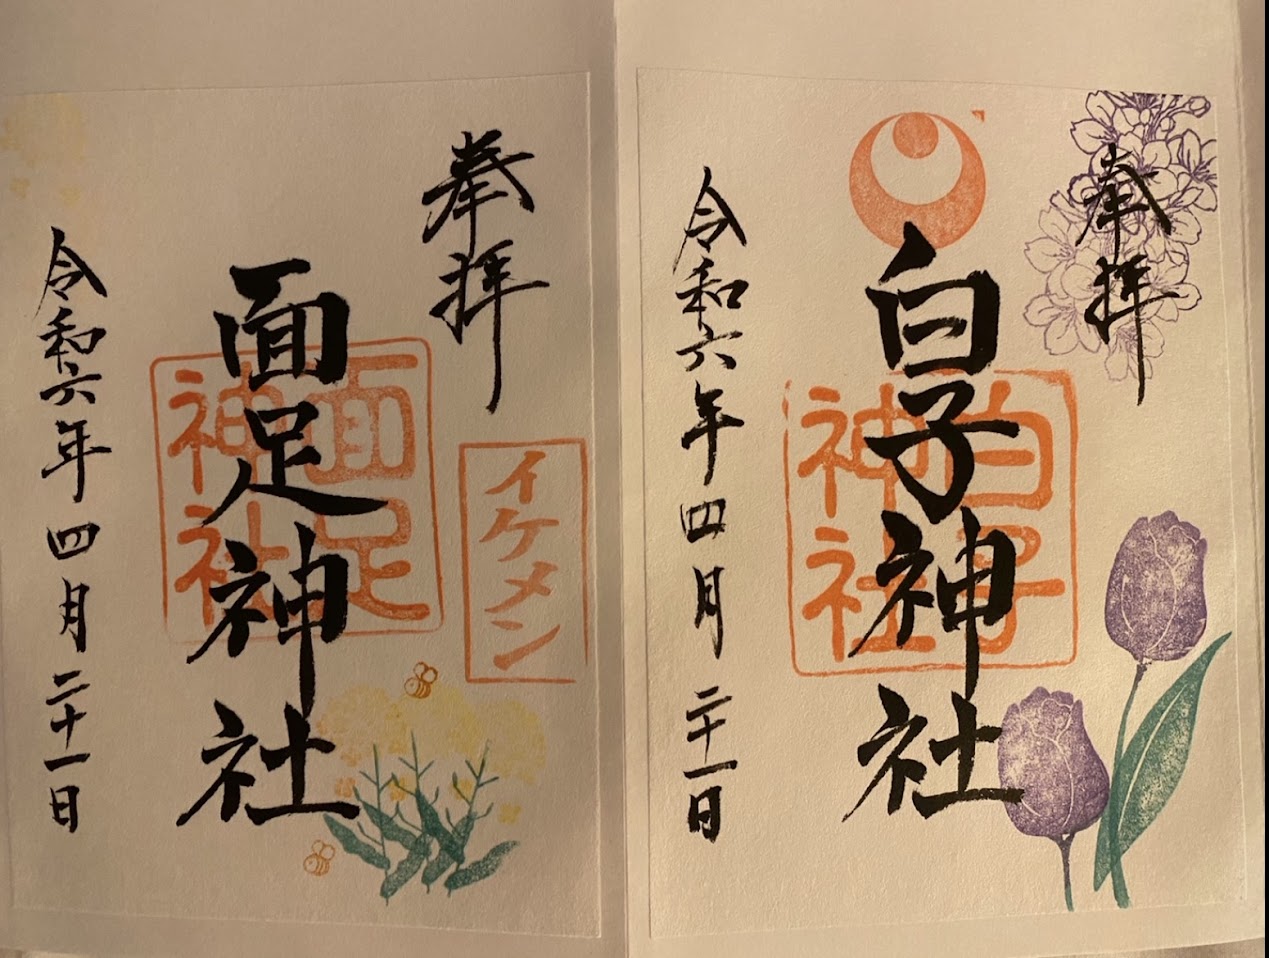 奉拝
白子神社
白子神社
令和六年四月二十一日
奉拝
イケメン
面足神社
面足神社
令和六年四月二十一日